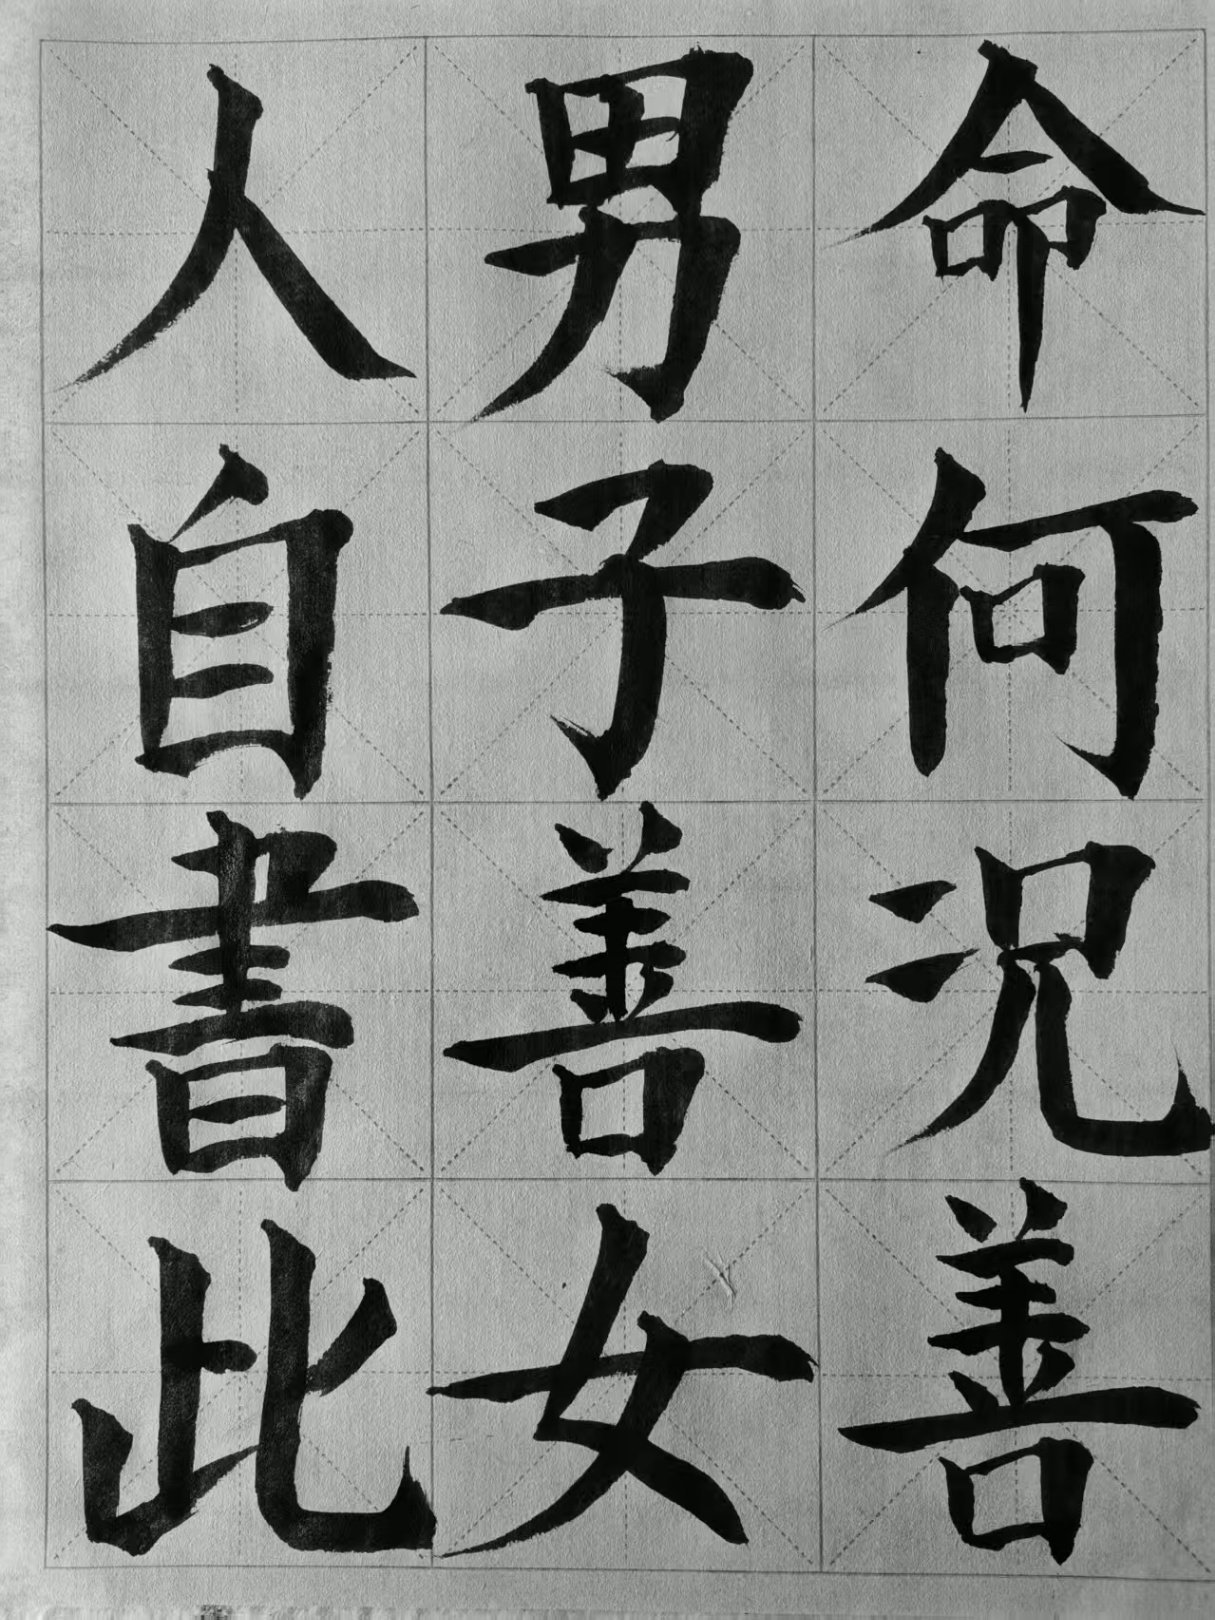 命何況善
男子善女
人自書此